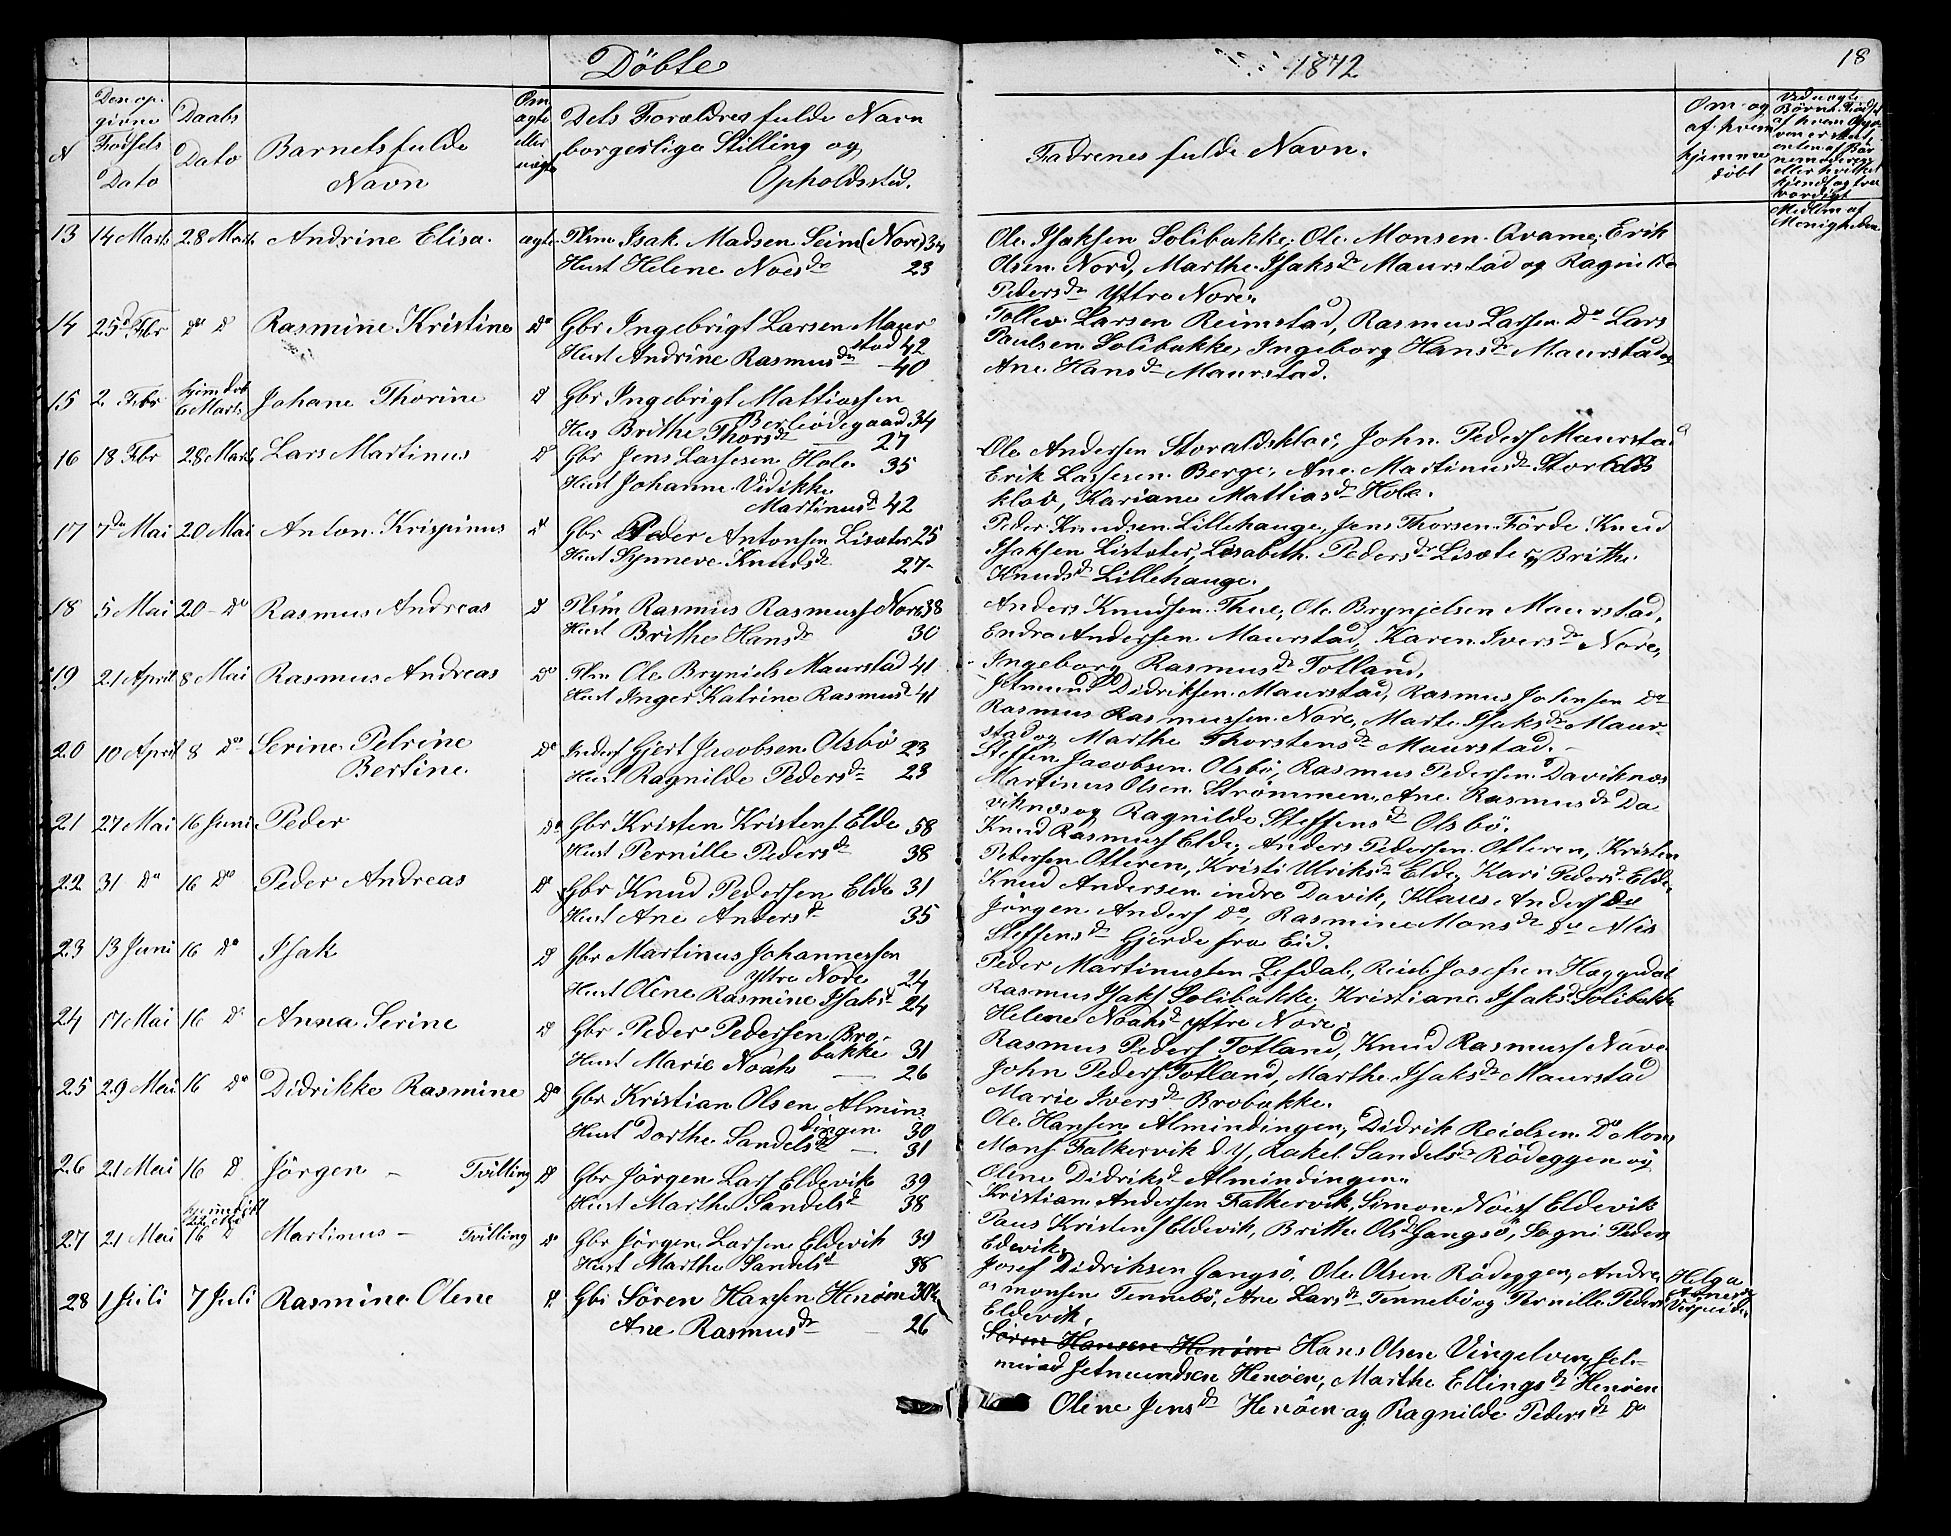 Döbte
1872
18
N
Den op-
givne
Fødsels
Dato
Daabs
Dato
Barnets fulde
Navn
Om
ægte
eller
uægte
Dets Forældres fulde Navn
borgerlige Stilling og
Opholdssted.
Fadrenes fulde Navn.
Om og
af hvem
hjemme
döbt
Medlem af
Menigheden
13 14 Marts 28 Marts Andrine Elisa. ægte Plsm Isak Madsen Seim (Nore) 34
Hust Helene Noesdr 23
Ole Isaksen Solibakke, Ole Monsen Qvame, Erik
Olsen Nord, Marthe Isaksdr Maurstad og Ragnilda
Pedersdr Yttre Nore.
14 25d Fbr do d Rasmine Kristine do Gbr Ingebrigt Larsen Maur
stad 42
Hust Andrine Rasmusdr 40
Tollev Larsen Reimstad, Rasmus Larsen do Lars
Paulsen Solibakke, Ingeborg Hansdr Maurstad og
Ane Hansdr Maurstad.
15 2 Fbr hjemdöb
6 Marts Johane Thorine d Gbr Ingebrigt Mattiassen
Berleödegaard 34
Hus Brithe Thorsdr 27
16 18 Fbr 28 Marts Lars Martinus d Gbr Jens Lassesen Hole 35
Hust Johanne Didikke
Martinusd 42
Ole Andersen Storaldsklöv, John Peders Maurstad
Erik Lassesen Berge, Ane Martinusdr Storolds
klöv, Kariane Mattiasdr Hole.
17 7de Mai 20 Mai Anton Krispinus d Gbr Peder Antonsen Lisæter 25
Hust Synneve Knudsdr 27
Peder Knudsen Lillehauge, Jens Thorsen Förde Knud
Isaksen Lisæter, Lisabeth Pedersdr Lisæte og Brithe
Knudsdr Lillehauge.
18 5 Mai 20 do Rasmus Andreas d Plsm Rasmus Rasmuss Nore 38
Hust Brithe Hansdr 30
Anders Knudsen Thue, Ole Brynjelsen Maurstad,
Endre Andersen Maurstad, Karen Iversdr Nore,
Ingeborg Rasmusdr Totland,
19 21 April 8 Mai Rasmus Andreas do Plsm Ole Bryniels Maurstad 41
Hust Inger Katrine Rasmusd 41
Jetmund Didriksen Maurstad, Rasmus Johnsen do
Rasmus Rasmussen Nore, Marte Isaksdr Maur-
stad og Marthe Thorstensdr Maurstad.
20 10 April 8 do Serine Petrine
Bertine. do Inders Gjert Jacobsen Olsbö 23
Hust Ragnilde Pedersdr 23
Steffen Jacobsen Olsbö, Rasmus Pedersen Daviknæs
Martinus Olsen Strömmen, Ane Rasmusdr Da
viknæs og Ragnilde Steffensdr Olsbö.
21 27 Mai 16 Juni Peder do Gbr Kristen Kristens Elde 58
Hust Pernille Pedersdr 38
Knud Rasmuss Elde, Anders Pedersen Otteren, Kristen
Pedersen Otteren, Kristi Ulriksdr Elde, Kari Pedersd Elde,
22 31 do 16 do Peder Andreas d Gbr Knud Pedersen Elde 31
Hust Ane Andersdr 35
Knud Andersen indre Davik, Klaus Anders do
Jörgen Anders do, Rasmine Monsdr do Alis
Steffensdr Gjerde fra Eid.
23 13 Juni 16 do Isak d Gbr Martinus Johannessen
Yttre Nore 24
Hust Olene Rasmine Isaksd 24
Peder Martinussen Lefdal, Reiel Josefsen Hæggedal
Rasmus Isaks Solibakke, Kristiane Isaksd Solibakke
Helene Noahsd yttre Nore.
24 17 Mai 16 d Anna Serine d Gbr Peder Pedersen Bro-
bakke 31
Hust Marie Noah 26
Rasmus Peders Totland, Knud Rasmuss Nave
John Peders Totland, Marthe Isaksdr Maurstad
Marie Iversdr Brobakke.
25 29 Mai 16 do Didrikke Rasmine do Gbr Kristian Olsen Almin-
dingen 30
Hust Dorthe Sandelsdr 31
Ole Hansen Almindingen, Didrik Reielsen do Mons
Mons Falkervik d Y, Rakel Sandelsdr Rödeggen og
Olene Didriksd Almindingen.
26 21 Mai 16 d Jörgen - Tvilling d Gbr Jörgen Lars Eldevik 39
Hust Marthe Sandelsd 38
Kristian Andersen Falkervik, Simon Noess Eldevik
Paus Kristens Eldevik, Brithe Olsd Gangsö, Sogni Peders
Eldevik.
27 21 Mai hjemdöbt
22 Mai
16 d Martinus - Tvilling do Gbr Jörgen Larsen Eldevik 39
Hust Marthe Sandelsd 38
Josef Didriksen Gangsö, Ole Olsen Rödeggen, Andre
as Monsen Tennebö, Ane Larsdr Tennebö og Pernille Peders
Eldevik.
Helga
28 1 Juli 7 Juli Rasmine Olene d Gbr Sören Hansen Henöen 30
Ane Rasmusdr 26
Sören Hansen Henöen Hans Olsen Vingelven, Jet-
mund Jetmundsen Henöen, Marthe Ellingsdr Henöen
Olene Jensdr Henöen og Ragnilde Pedersdr do